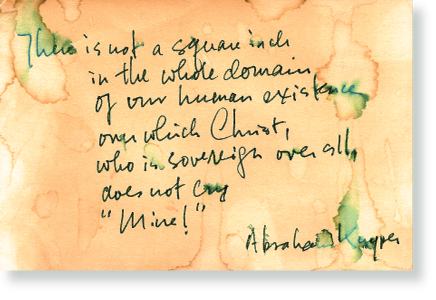 There is not a square inch
in the whole domain
of our human existence
over which Christ,
who is sovereign over all,
does not cry
"Mine!"
Abraham Kuyper